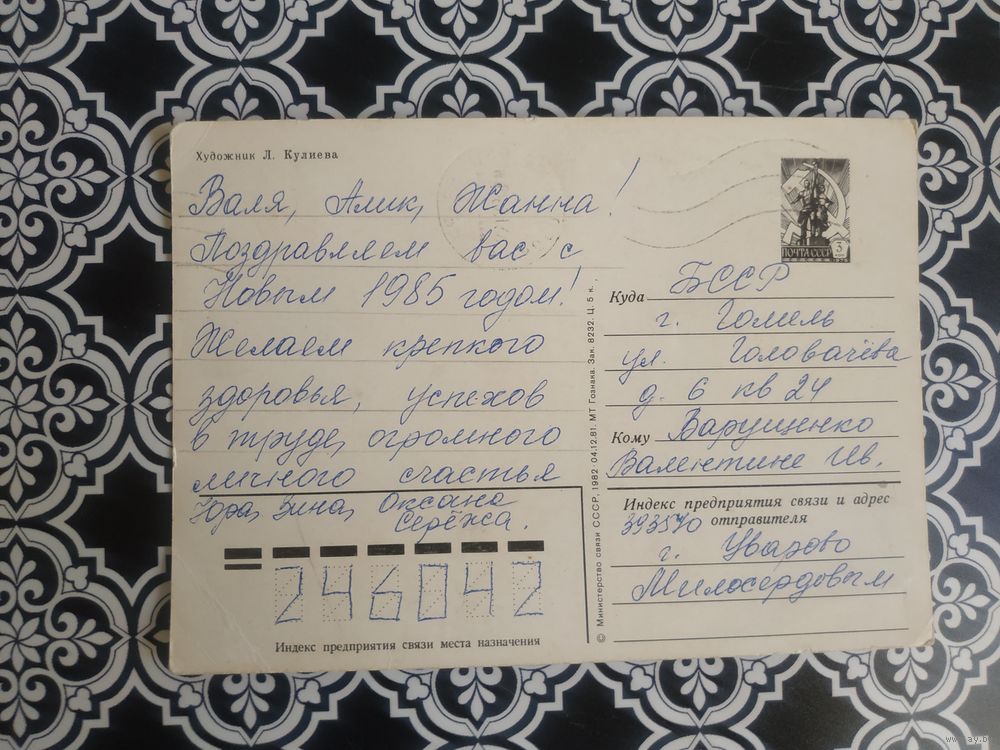 Художник Л. Кулиева
Валя, Алик, Жанна!
Поздравляем вас с
Новым 1985 годом!
Желаем крепкого
здоровья, успехов
в труде, огромного
личного счастья
Юра, Зина, Оксана
Серёжа.
246042
Индекс предприятия связи места назначения
© Министерство связи СССР, 1982 04.12.81. МТ Гознака. Зак. 8232. Ц. 5 к.
ПОЧТА СССР
3
Куда БССР
г. Гомель
ул. Головачёва
д. 6 кв 24
Кому Варущенко
Валентине Ив.
Индекс предприятия связи и адрес
393570 отправителя
г. Уварово
Милосердовым
www.ay.by